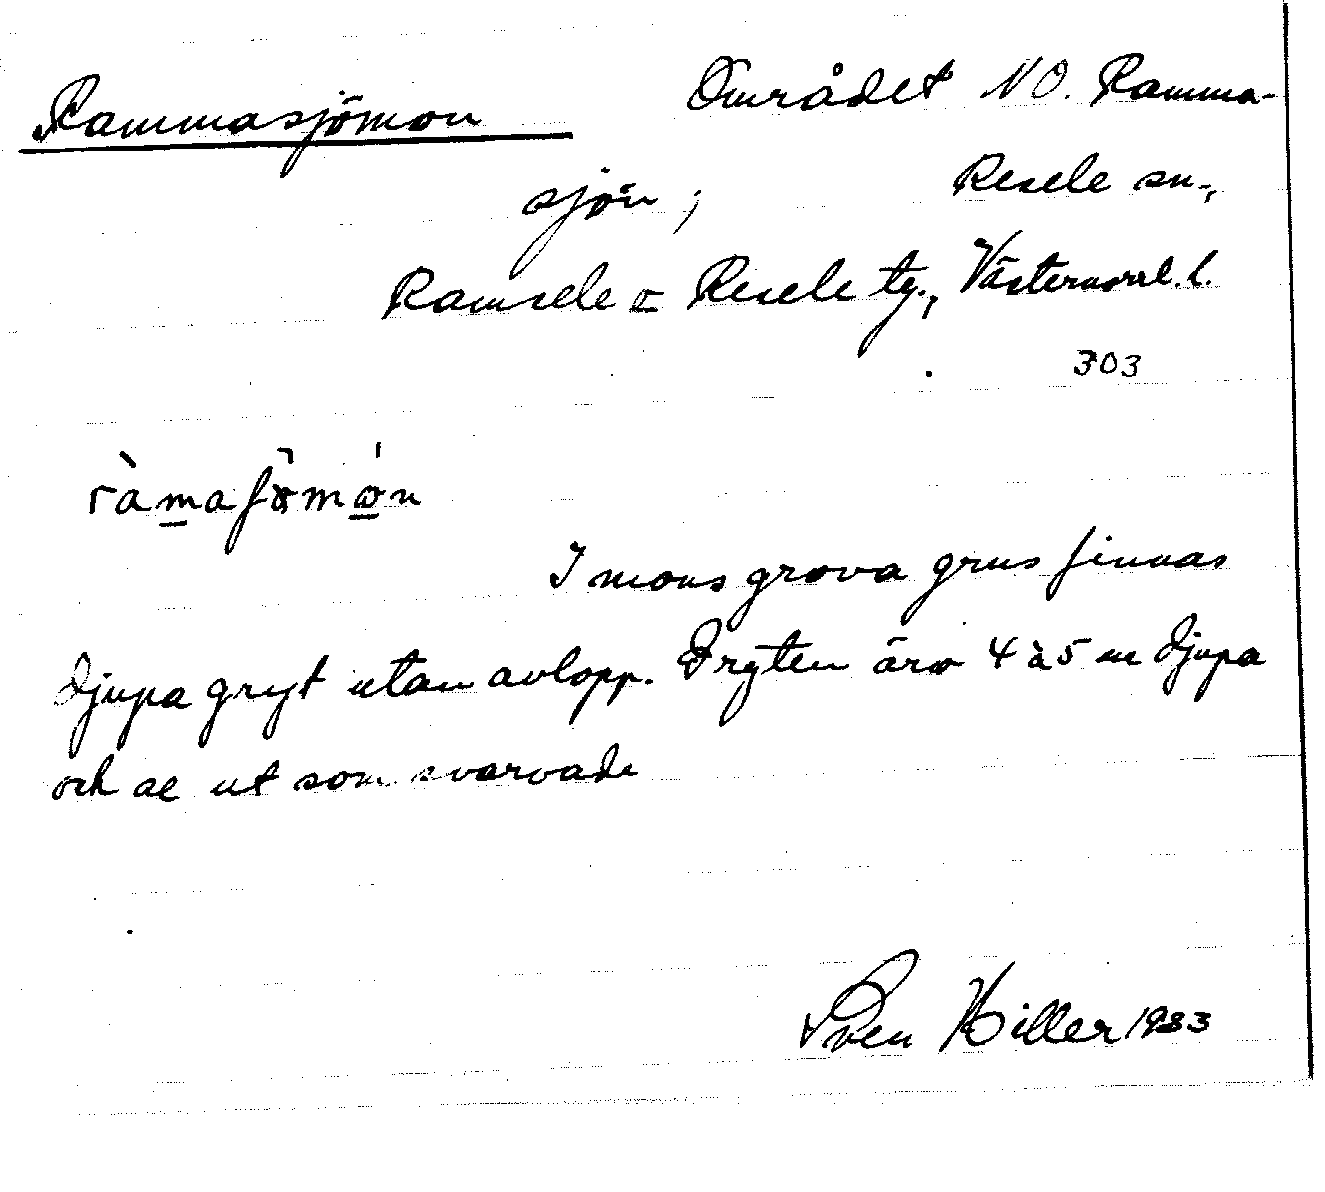 Rammasjömon Området NO. Ramma-
sjön; Resele sn.,
Ramsele o Resele tg., Västernorrl. l.
303
ràmaʃö̀mó̱n
I mons grova grus finnas
djupa gryt utan avlopp. Gryten äro 4 à 5 m djupa
och se ut som svarvade
Sven Hiller 1933